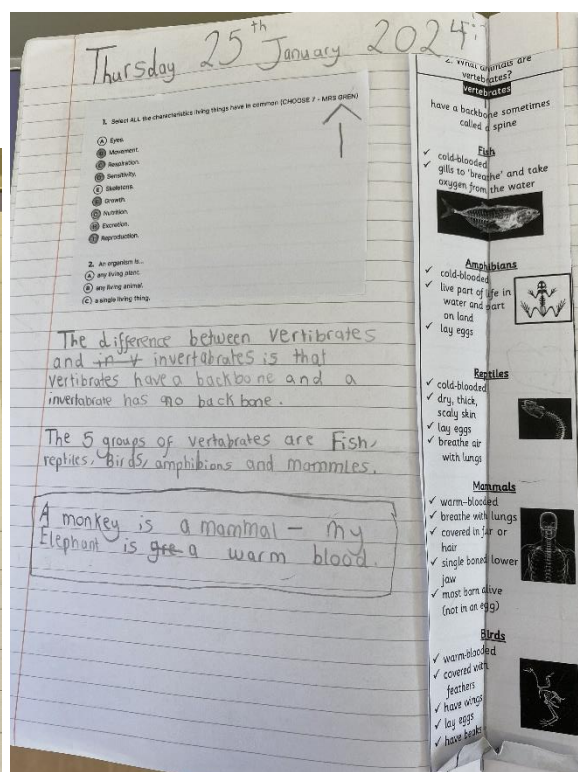 Thursday 25th January 2024
1. Select ALL the characteristics living things have in common (CHOOSE 7 - MRS GREN)
A Eyes.
B Movement.
C Respiration.
D Sensitivity.
E Skeletons.
F Growth.
G Nutrition.
H Excretion.
I Reproduction.
2. An organism is...
A any living plant.
B any living animal.
C a single living thing.
The difference between vertibrates
and in v invertabrates is that
vertibrates have a backbone and a
invertabrate has no back bone.
The 5 groups of vertabrates are Fish,
reptiles, Birds, amphibions and mammles.
A monkey is a mammal – my
Elephant is gre a warm blood.
2. What animals are
vertebrates?
vertebrates
have a backbone sometimes
called a spine
Fish
✓ cold-blooded
✓ gills to 'breathe' and take
oxygen from the water
Amphibians
✓ cold-blooded
✓ live part of life in
water and part
on land
✓ lay eggs
Reptiles
✓ cold-blooded
✓ dry, thick,
scaly skin
✓ lay eggs
✓ breathe air
with lungs
Mammals
✓ warm-blooded
✓ breathe with lungs
✓ covered in fur or
hair
✓ single boned lower
jaw
✓ most born alive
(not in an egg)
Birds
✓ warm-blooded
✓ covered with
feathers
✓ have wings
✓ lay eggs
✓ have beaks